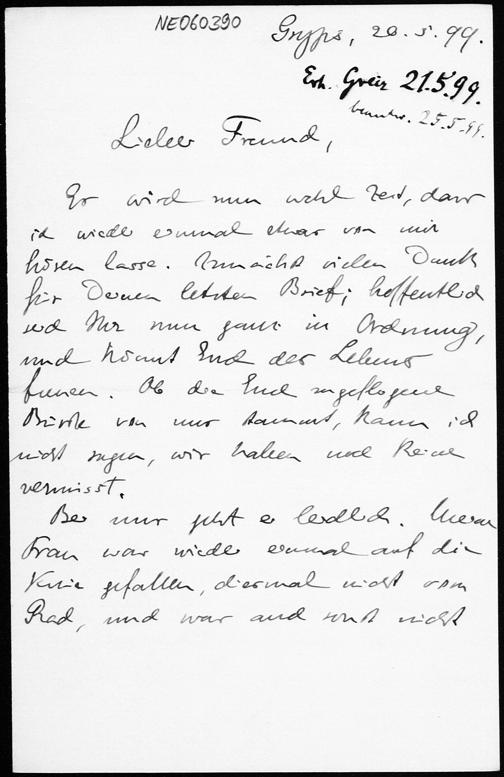 NE060390
Gryps, 20.5.99.
Erh. Greiz 21.5.99.
beantw. 25.5.99.
Lieber Freund,
Es wird nun wohl Zeit, dass
ich wieder einmal etwas von mir
hören lasse. Zunächst vielen Dank
für Deinen letzten Brief; hoffentlich
seid Ihr nun ganz in Ordnung,
und könnt Euch des Lebens
freuen. Ob die Euch zugeflogene
von mir stammt, kann ich
nicht sagen, wir haben noch keine
vermisst.
Bei mir geht es leidlich. Meine
Frau war wieder einmal auf die
Knie gefallen, diesmal nicht vom
Rad, und war auch sonst nicht